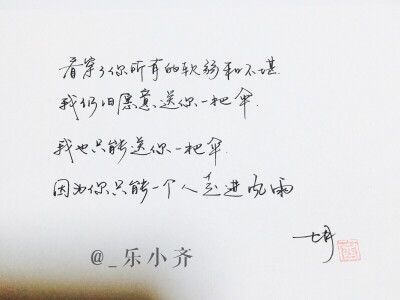 看穿了你所有的软弱和不堪
我仍旧愿意送你一把伞.
我也只能送你一把伞.
因为你只能一个人走进风雨
@_乐小齐